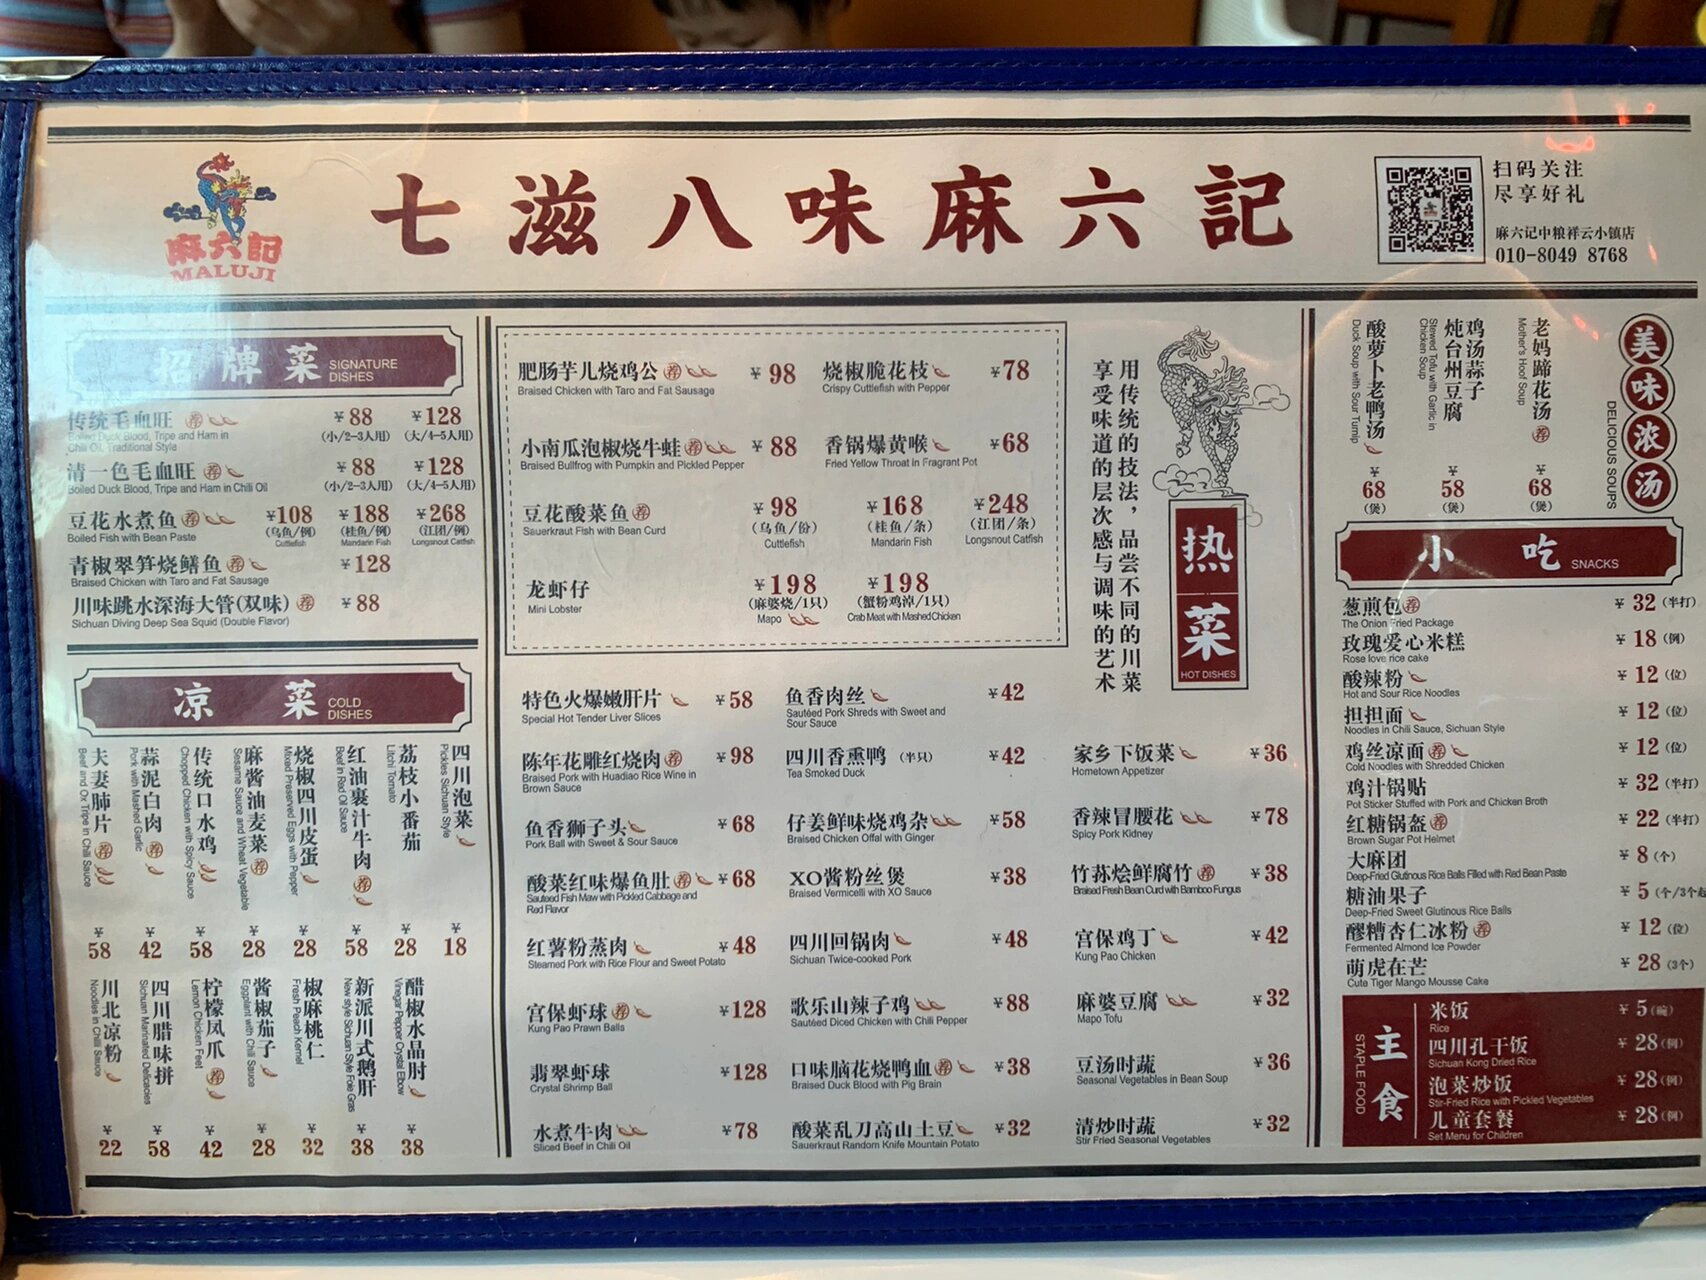 麻六記
MALUJI
七滋八味麻六記
扫码关注
尽享好礼
麻六记中粮祥云小镇店
010-8049 8768
招牌菜 SIGNATURE DISHES
传统毛血旺 荐 ¥88 ¥128
Boiled Duck Blood, Tripe and Ham in (小/2-3人用) (大/4-5人用)
Chili Oil, Traditional Style
清一色毛血旺 荐 ¥88 ¥128
Boiled Duck Blood, Tripe and Ham in Chili Oil (小/2-3人用) (大/4-5人用)
豆花水煮鱼 荐 ¥108 ¥188 ¥268
Boiled Fish with Bean Paste (乌鱼/例) (桂鱼/例) (江团/例)
Cuttlefish Mandarin Fish Longsnout Catfish
青椒翠笋烧鳝鱼 荐 ¥128
Braised Chicken with Taro and Fat Sausage
川味跳水深海大管(双味) 荐 ¥88
Sichuan Diving Deep Sea Squid (Double Flavor)
凉菜 COLD DISHES
夫妻肺片 荐
Beef and Ox Tripe in Chili Sauce
¥58
蒜泥白肉 荐
Pork with Mashed Garlic
¥42
传统口水鸡
Chopped Chicken with Spicy Sauce
¥58
麻酱油麦菜 荐
Sesame Sauce and Wheat Vegetable
¥28
烧椒四川皮蛋
Mixed Preserved Eggs with Pepper
¥28
红油裹汁牛肉 荐
Beef in Red Oil Sauce
¥58
荔枝小番茄
Litchi Tomato
¥28
四川泡菜
Pickles Sichuan Style
¥18
川北凉粉
Noodles in Chilli Sauce
¥22
四川腊味拼
Sichuan Marinated Delicacies
¥58
柠檬凤爪 荐
Lemon Chicken Feet
¥42
酱椒茄子
Eggplant with Chili Sauce
¥28
椒麻桃仁
Fresh Peach Kernel
¥32
新派川式鹅肝
New style Sichuan Style Foie Gras
¥38
醋椒水晶肘
Vinegar Pepper Crystal Elbow
¥38
肥肠芋儿烧鸡公 荐 ¥98
Braised Chicken with Taro and Fat Sausage
烧椒脆花枝 ¥78
Crispy Cuttlefish with Pepper
小南瓜泡椒烧牛蛙 荐 ¥88
Braised Bullfrog with Pumpkin and Pickled Pepper
香锅爆黄喉 ¥68
Fried Yellow Throat in Fragrant Pot
豆花酸菜鱼 荐 ¥98 ¥168 ¥248
Sauerkraut Fish with Bean Curd (乌鱼/份) (桂鱼/条) (江团/条)
Cuttlefish Mandarin Fish Longsnout Catfish
龙虾仔 ¥198 ¥198
Mini Lobster (麻婆烧/1只) (蟹粉鸡淖/1只)
Mapo Crab Meat with Mashed Chicken
用传统的技法，品尝不同的川菜
享受味道的层次感与调味的艺术
热菜
HOT DISHES
特色火爆嫩肝片 ¥58
Special Hot Tender Liver Slices
陈年花雕红烧肉 荐 ¥98
Braised Pork with Huadiao Rice Wine in
Brown Sauce
鱼香狮子头 ¥68
Pork Ball with Sweet & Sour Sauce
酸菜红味爆鱼肚 荐 ¥68
Sauteed Fish Maw with Pickled Cabbage and
Red Flavor
红薯粉蒸肉 ¥48
Steamed Pork with Rice Flour and Sweet Potato
宫保虾球 荐 ¥128
Kung Pao Prawn Balls
翡翠虾球 ¥128
Crystal Shrimp Ball
水煮牛肉 ¥78
Sliced Beef in Chili Oil
鱼香肉丝 ¥42
Sautéed Pork Shreds with Sweet and
Sour Sauce
四川香熏鸭 (半只) ¥42
Tea Smoked Duck
仔姜鲜味烧鸡杂 ¥58
Braised Chicken Offal with Ginger
XO酱粉丝煲 ¥38
Braised Vermicelli with XO Sauce
四川回锅肉 ¥48
Sichuan Twice-cooked Pork
歌乐山辣子鸡 ¥88
Sautéed Diced Chicken with Chili Pepper
口味脑花烧鸭血 荐 ¥38
Braised Duck Blood with Pig Brain
酸菜乱刀高山土豆 ¥32
Sauerkraut Random Knife Mountain Potato
家乡下饭菜 ¥36
Hometown Appetizer
香辣冒腰花 ¥78
Spicy Pork Kidney
竹荪烩鲜腐竹 荐 ¥38
Braised Fresh Bean Curd with Bamboo Fungus
宫保鸡丁 ¥42
Kung Pao Chicken
麻婆豆腐 ¥32
Mapo Tofu
豆汤时蔬 ¥36
Seasonal Vegetables in Bean Soup
清炒时蔬 ¥32
Stir Fried Seasonal Vegetables
美味浓汤
DELICIOUS SOUPS
老妈蹄花汤 荐
Mother's Hoof Soup
¥68
(煲)
鸡汤蒜子
炖台州豆腐
Stewed Tofu with Garlic in
Chicken Soup
¥58
(煲)
酸萝卜老鸭汤
Duck Soup with Sour Turnip
¥68
(煲)
小吃 SNACKS
葱煎包 荐 ¥32 (半打)
The Onion Fried Package
玫瑰爱心米糕 ¥18 (例)
Rose love rice cake
酸辣粉 ¥12 (位)
Hot and Sour Rice Noodles
担担面 ¥12 (位)
Noodles in Chili Sauce, Sichuan Style
鸡丝凉面 荐 ¥12 (位)
Cold Noodles with Shredded Chicken
鸡汁锅贴 ¥32 (半打)
Pot Sticker Stuffed with Pork and Chicken Broth
红糖锅盔 荐 ¥22 (半打)
Brown Sugar Pot Helmet
大麻团 ¥8 (个)
Deep-Fried Glutinous Rice Balls Filled with Red Bean Paste
糖油果子 ¥5 (个/3个起
Deep-Fried Sweet Glutinous Rice Balls
醪糟杏仁冰粉 荐 ¥12 (位)
Fermented Almond Ice Powder
萌虎在芒 ¥28 (3个)
Cute Tiger Mango Mousse Cake
主食
STAPLE FOOD
米饭 ¥5 (碗)
Rice
四川孔干饭 ¥28 (例)
Sichuan Kong Dried Rice
泡菜炒饭 ¥28 (例)
Stir-Fried Rice with Pickled Vegetables
儿童套餐 ¥28 (例)
Set Menu for Children